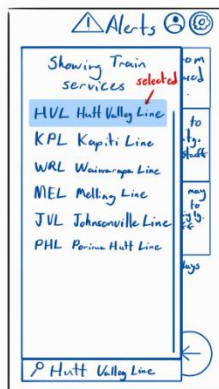 Alerts
Showing Train
services
selected
HVL Hutt Valley Line
KPL Kapiti Line
WRL Wairarapa Line
MEL Melling Line
JVL Johnsonville Line
PHL Porirua Hutt Line
to
may
to
Hutt Valley Line